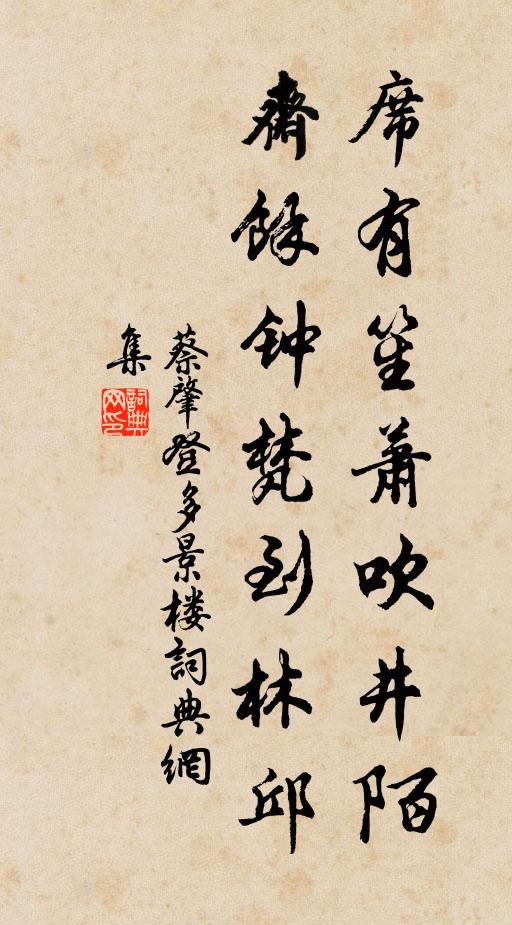 席有笙萧吹井陌
斋馀钟梵到林邱
蔡肇登多景楼詞典網
集
詞典
网印